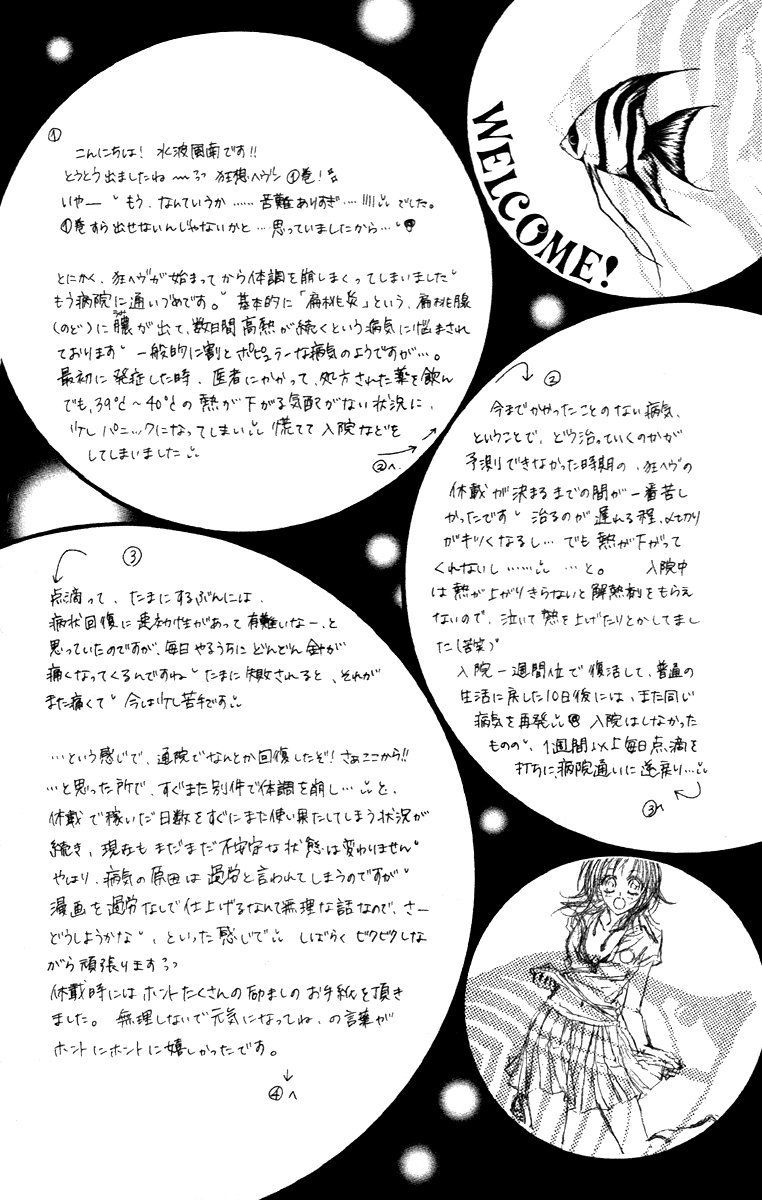 WELCOME!
①
こんにちは! 水波風南です!!
とうとう出ましたね〜〜っっ 狂想ヘヴン①巻!
いやー もう、なんていうか……苦難ありすぎ…!!!!でした。
①巻すら出せないんじゃないかと…思っていましたから…
とにかく、狂ヘヴが始まってから体調を崩しまくってしまいました。
もう病院に通いづめです。基本的に「扁桃炎」という、扁桃腺
(のど)に膿が出て、数日間高熱が続くという病気に悩まされ
ております。一般的に割とポピュラーな病気のようですが…。
最初に発症した時、医者にかかって、処方された薬を飲ん
でも、39℃〜40℃の熱が下がる気配がない状況に、
少しパニックになってしまい 慌てて入院などを
してしまいました
②へ
②
今までかかったことのない病気、
ということで、どう治っていくのかが
予測できなかった時期の、狂ヘヴの
休載が決まるまでの間が一番苦し
かったです。治るのが遅れる程、〆切り
がキツくなるし…でも熱が下がって
くれないし……。…と。 入院中
は熱が上がりきらないと解熱剤をもらえ
ないので、泣いて熱を上げたりとかしてまし
た(苦笑)。
入院一週間位で復活して、普通の
生活に戻した10日後には、また同じ
病気を再発 入院はしなかった
ものの、1週間以上毎日点滴を
打ちに、病院通いに逆戻り…
③へ
③
点滴って、たまにするぶんには、
病状回復に即効性があって有難いなー、と
思っていたのですが、毎日やるうちにどんどん針が
痛くなってくるんですね。たまに失敗されると、それが
また痛くて。今は少し苦手です
…という感じで、通院でなんとか回復したぞ!さぁここから!!
…と思った所で、すぐまた別件で体調を崩し…と、
休載で稼いだ日数をすぐにまた使い果たしてしまう状況が
続き、現在もまだまだ不安定な状態は変わりません。
やはり、病気の原因は過労と言われてしまうのですが。
漫画を過労なしで仕上げるなんて無理な話なので、さー
どうしようかな。、といった感じで しばらくビクビクしな
がら頑張りますっっ
休載時にはホントたくさんの励ましのお手紙を頂き
ました。無理しないで元気になってね、の言葉が
ホントにホントに嬉しかったです。
④へ